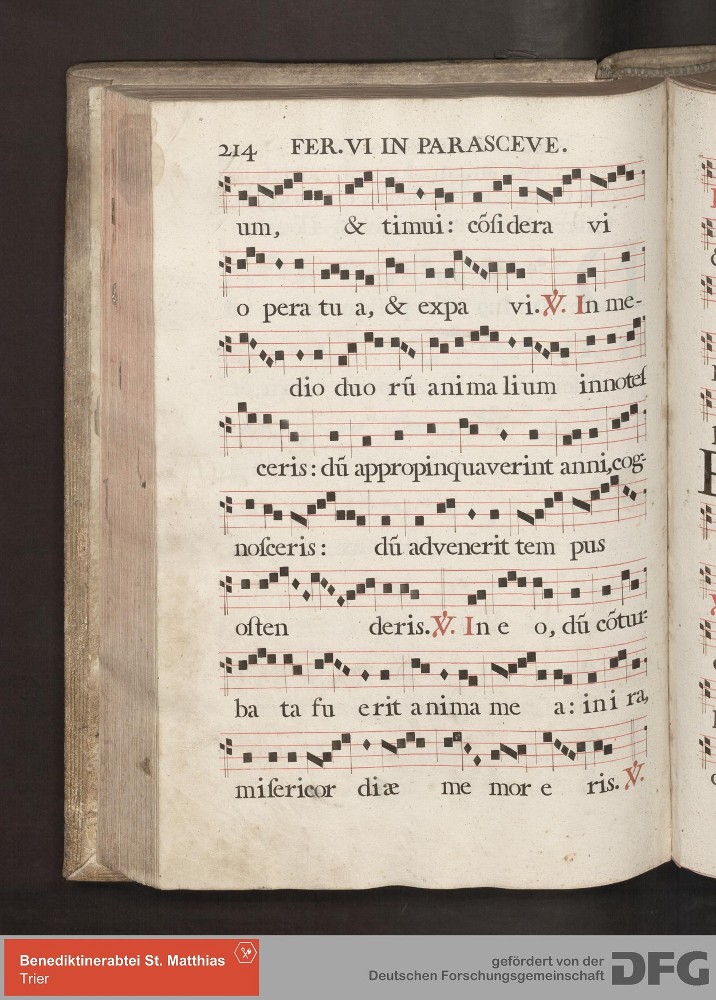 214 FER. VI IN PARASCEVE.
um, & timui: cõſidera vi
o pera tu a, & expa vi. ℣. In me-
dio duo rũ anima lium innoteſ
ceris: dũ appropinquaverint anni, cog-
noſceris: dũ advenerit tem pus
oſten deris. ℣. In e o, dũ cõtur-
ba ta fu erit anima me a: in i ra,
miſericor diæ me mor e ris. ℣.
Benediktinerabtei St. Matthias
Trier
gefördert von der
Deutschen Forschungsgemeinschaft DFG